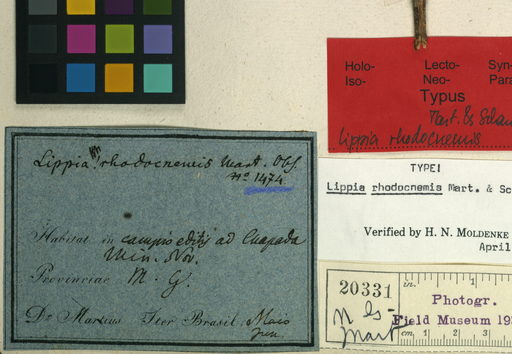 Lippia rhodocnemis Mart. Obs.
nº 1474.
Habitat in campis editis ad Chapada
Min. Nov.
Provinciae M. G.
Dr Martius Iter Brasil. Maio
Jun.
Holo- Lecto- Syn-
Iso- Neo- Para
Typus
Mart. & Schau
Lippia rhodocnemis
TYPE!
Lippia rhodocnemis Mart. & Sc
Verified by H. N. MOLDENKE
April
20331
N
Mart
in. 1
Photogr.
Field Museum 19
cm. 1 2 3